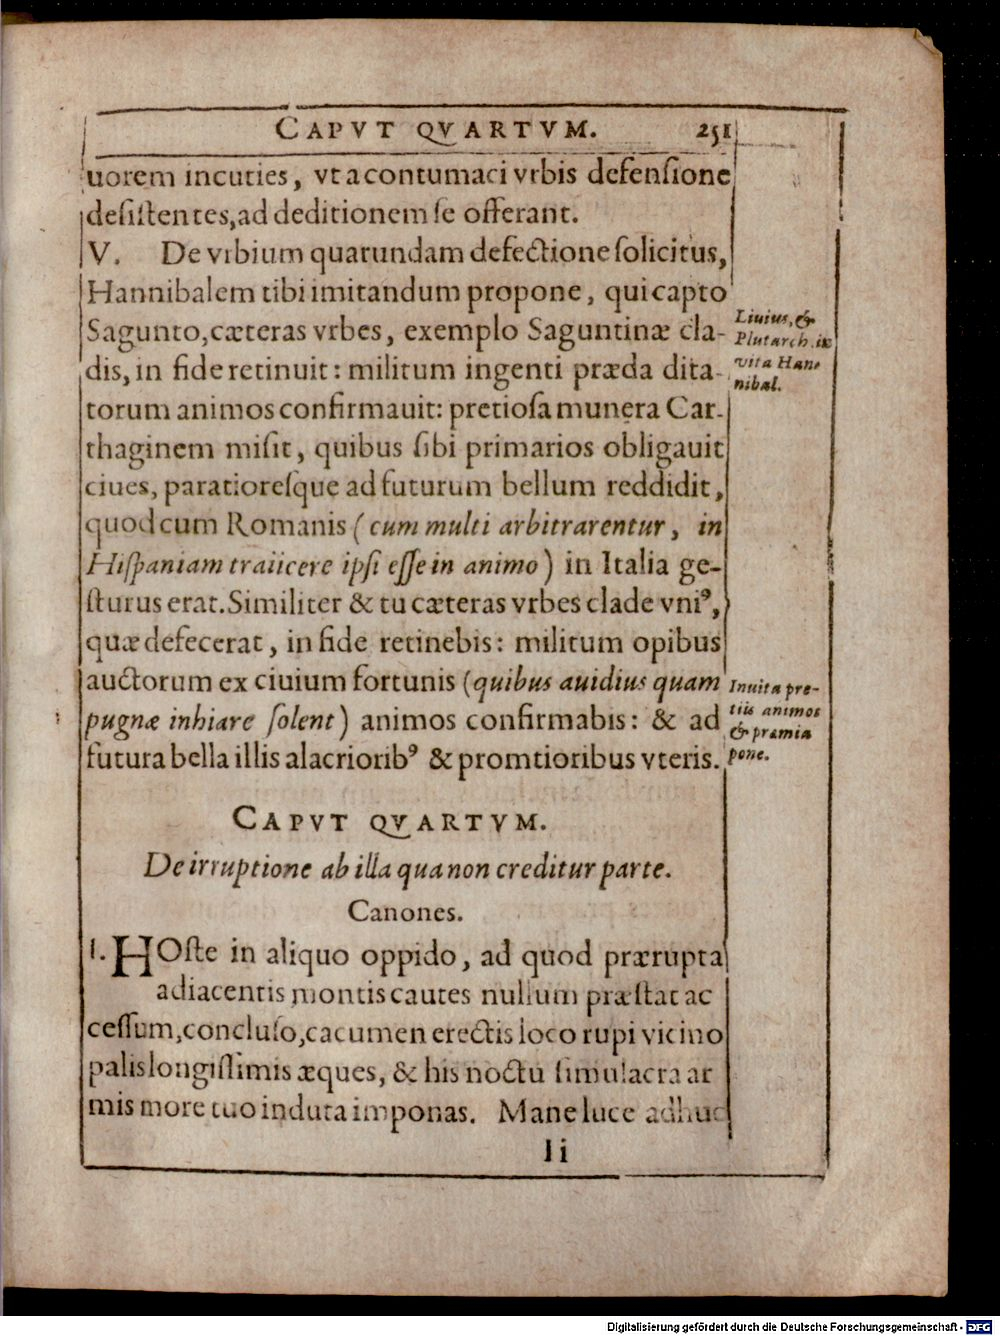 CAPVT QVARTVM. 251
uorem incuties, vt a contumaci vrbis defenſione
deſiſtentes, ad deditionem ſe offerant.
V. De vrbium quarundam defectione ſolicitus,
Hannibalem tibi imitandum propone, qui capto
Sagunto, cæteras vrbes, exemplo Saguntinæ cla-
dis, in fide retinuit: militum ingenti præda dita-
torum animos confirmauit: pretioſa munera Car-
thaginem miſit, quibus ſibi primarios obligauit
ciues, paratioreſque ad futurum bellum reddidit,
quod cum Romanis (cum multi arbitrarentur, in
Hiſpaniam traiicere ipſi eſſe in animo) in Italia ge-
ſturus erat. Similiter & tu cæteras vrbes clade vniꝰ,
quæ defecerat, in fide retinebis: militum opibus
auctorum ex ciuium fortunis (quibus auidius quam
pugnæ inhiare ſolent) animos confirmabis: & ad
futura bella illis alacrioribꝰ & promtioribus vteris.
Liuius, &
Plutarch. in
vita Han-
nibal.
Inuita pre-
tiis animos
& præmia
pone.
CAPVT QVARTVM.
De irruptione ab illa qua non creditur parte.
Canones.
I. HOſte in aliquo oppido, ad quod prærupta
adiacentis montis cautes nullum præſtat ac
ceſſum, concluſo, cacumen erectis loco rupi vicino
palis longiſſimis æques, & his noctu ſimulacra ar
mis more tuo induta imponas. Mane luce adhuc
Ii
Digitalisierung gefördert durch die Deutsche Forschungsgemeinschaft - DFG